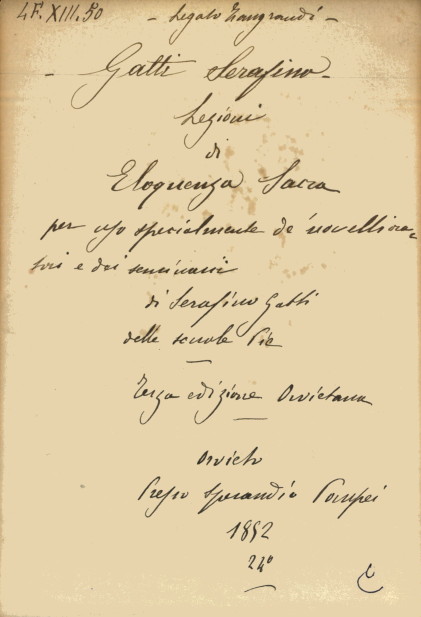 4F. XIII. 50 - Legato Zangrandi -
- Gatti Serafino -
Lezioni
di
Eloquenza Sacra
per uso specialmente de' novelli ora-
tori e dei seminari
di Serafino Gatti
delle scuole Pie
Terza edizione Orvietana
Orvieto
Presso Sperandio Pompei
1852
24°